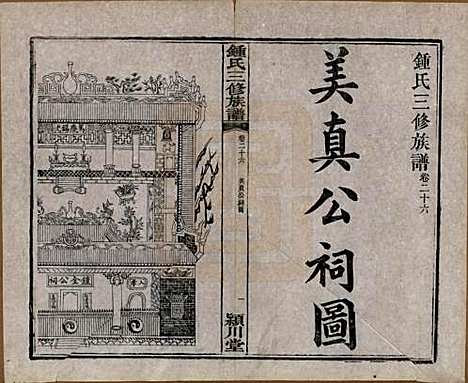 鍾氏三修族譜 卷二十六
美真公祠圖
鍾氏三修族譜
卷二十六 美真公祠圖
一
潁川堂
鍾全公祠